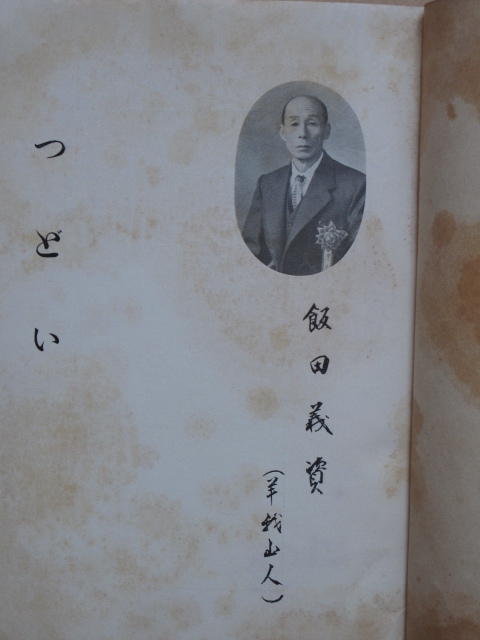 飯田義資
(羊我山人)
つどい